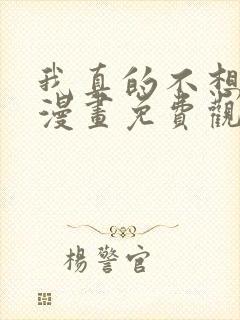 我真的不想
漫畫免費觀
楊警官